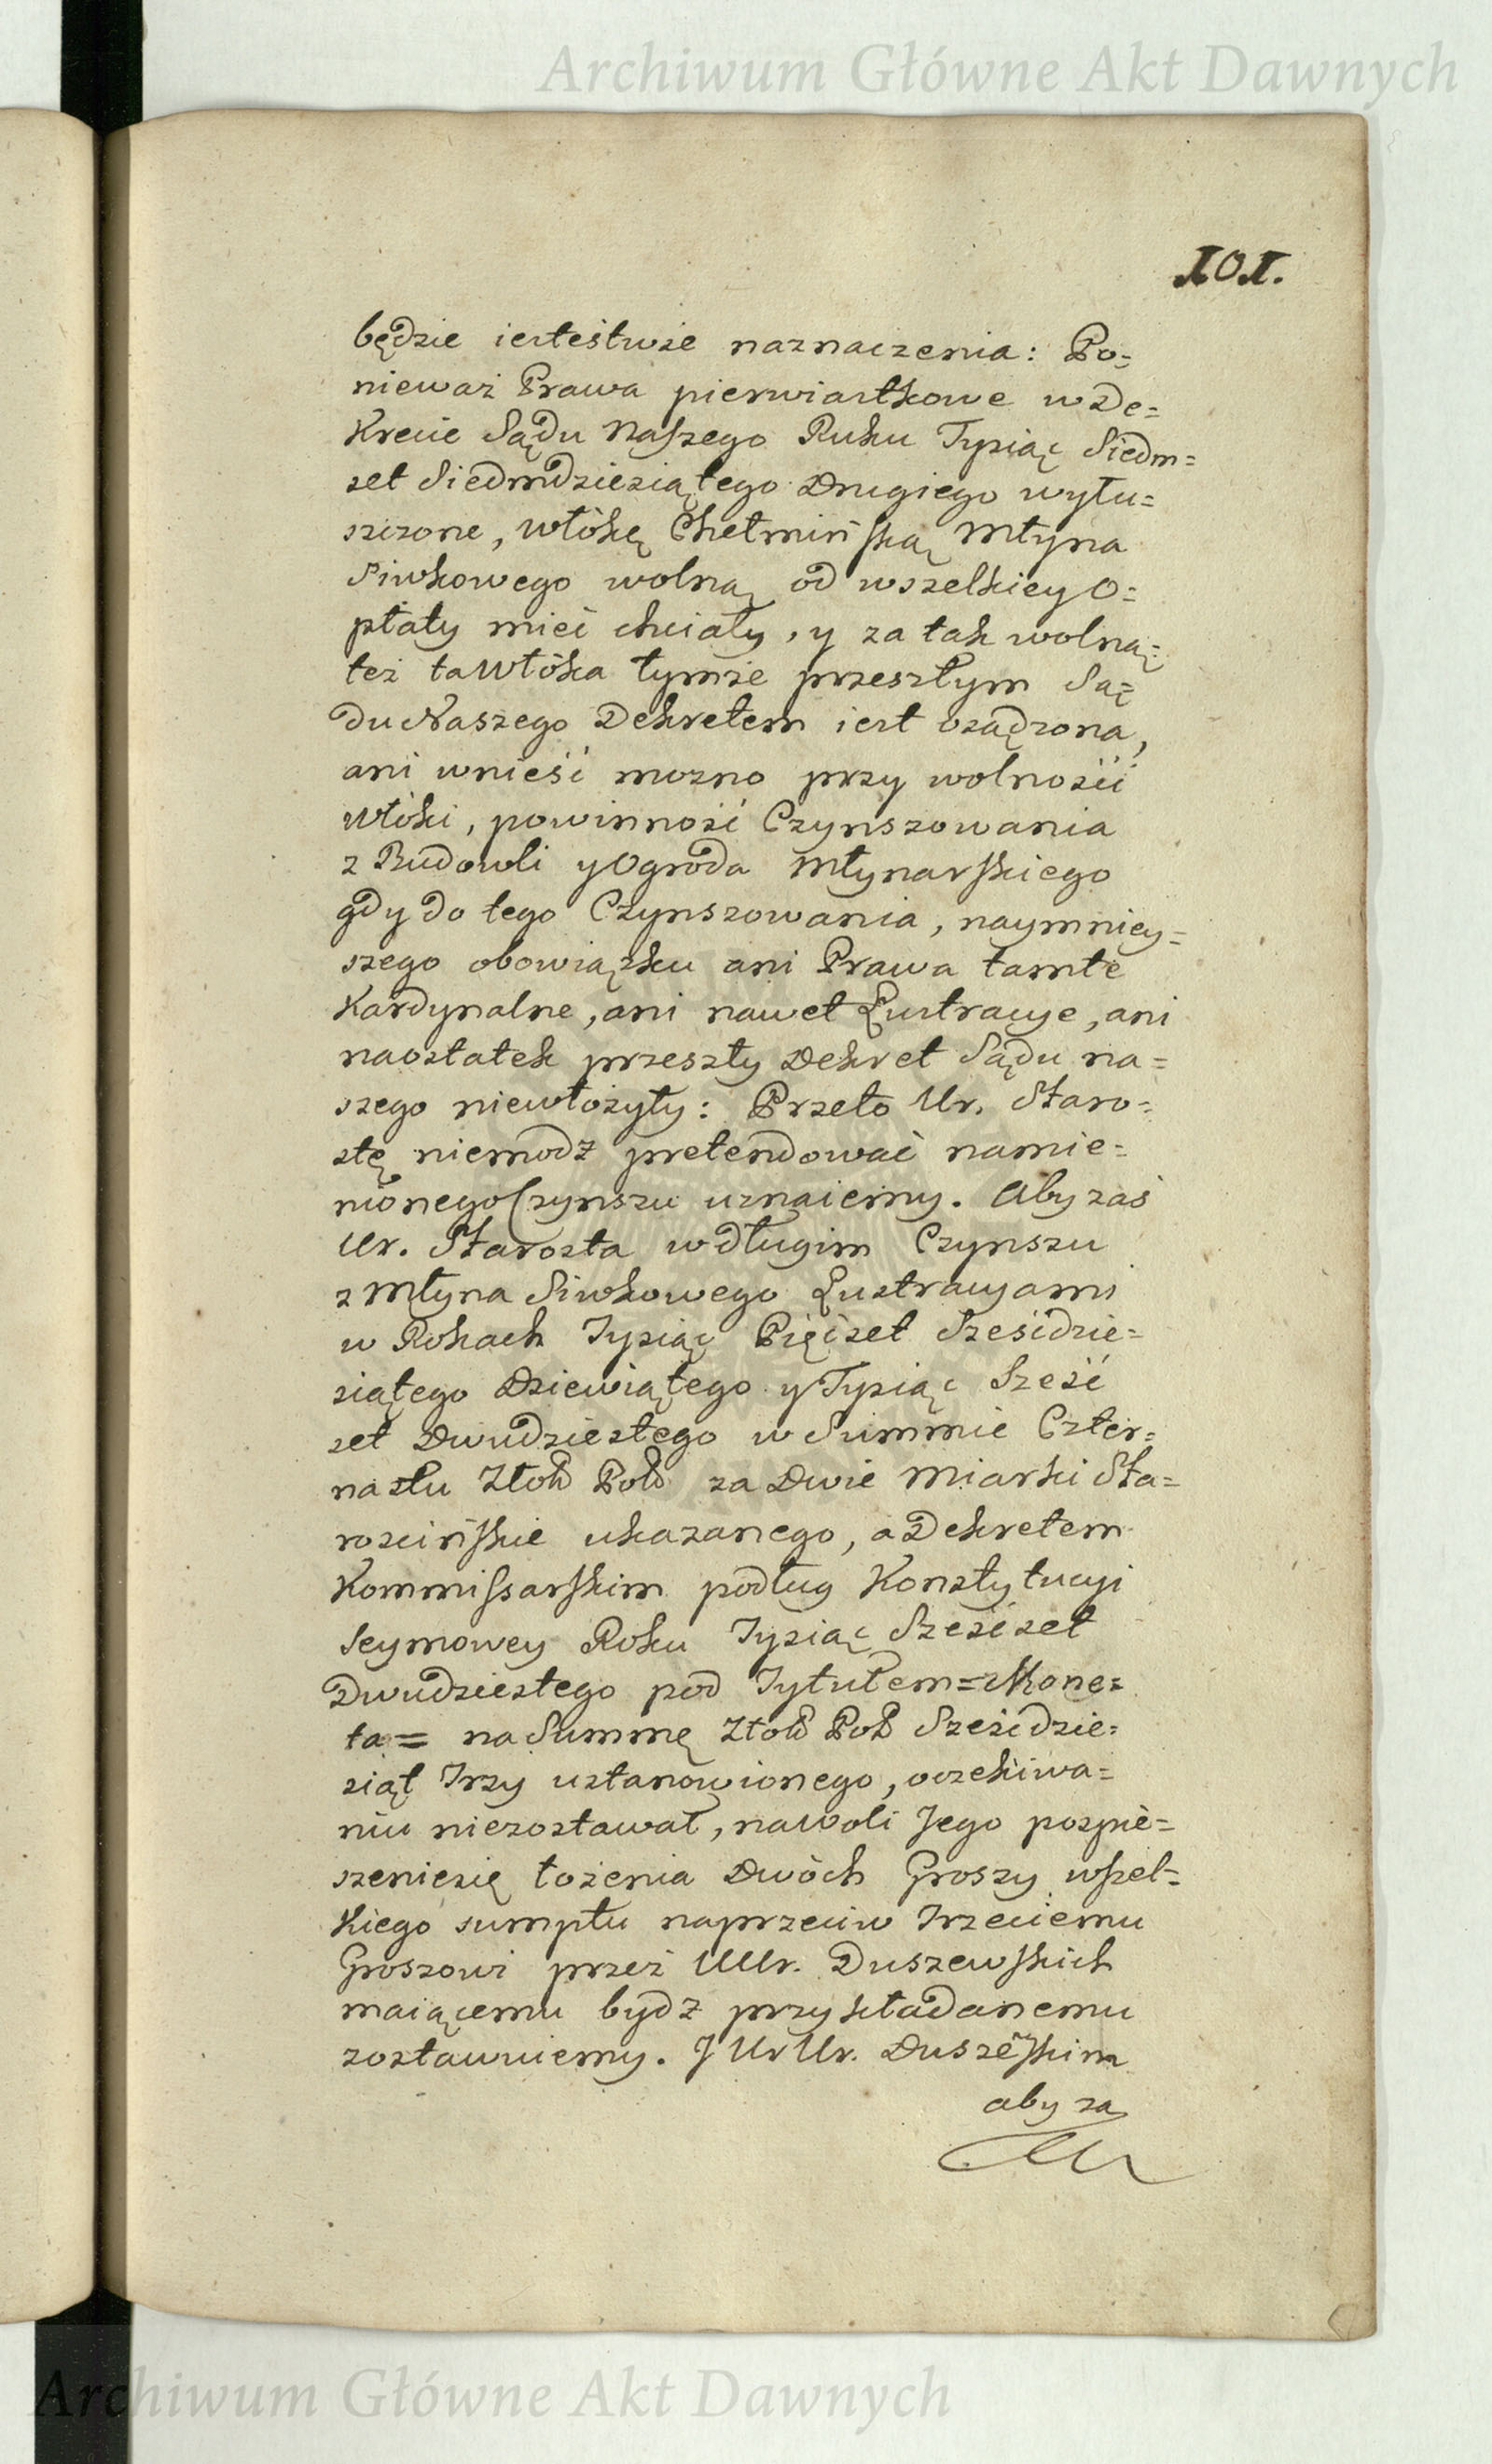 Archiwum Główne Akt Dawnych
101.
będzie iestestwie naznaczenia: Po=
nieważ Prawa pierwiastkowe w De=
krecie Sądu Naszego Ruku Tysiąc Siedm=
set Siedmdziesiątego Drugiego wytu=
szczone, Włókę Chełmińską Młyna
Siwkowego wolną od wszelkiey O=
płaty mieć chciały, y za tak wolną=
też ta Włóka tymże przeszłym Są=
du Naszego Dekretem iest osądzona,
ani wnieść można przy wolności
Włóki, powinność Czynszowania
z Budowli y Ogroda Młynarskiego
gdy do tego Czynszowania, naymniey=
szego obowiązku ani Prawa tamte
Kardynalne, ani nawet Lustracye, ani
naostatek przeszły Dekret Sądu na=
szego niewłożyły: Przeto Ur. Staro=
stę niemodz pretendować namie=
nionego Czynszu uznaiemy. Aby zaś
Ur. Starosta w długim Czynszu
z Młyna Siwkowego Lustracyami
w Rokach Tysiąc Pięćset Sześćdzie=
siątego Dziewiątego y Tysiąc Sześć
set Dwudziestego w Summie Czter=
nastu Złotch Polch za Dwie Miarki Sta=
rościńskie ukazanego, a Dekretem
Kommissarskim podług Konstytucyi
Seymowey Roku Tysiąc Sześćset
Dwudziestego pod Tytułem=Mone=
ta= na Summę Złotch Polch Sześćdzie=
siąt Trzy ustanowionego, oczekiwa=
niu niezostawał, na woli Jego pospie=
szeniesię łożenia Dwóch Groszy wszel=
kiego sumptu naprzeciw Trzeciemu
Groszowi przez UUr. Duszewskich
maiącemu bydź przykładanemu
zostawuiemy. J Ur Ur. Duszeskim
aby za
Archiwum Główne Akt Dawnych